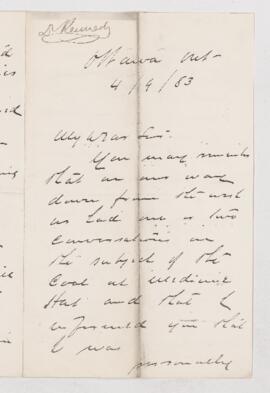 Dr Kennedy
Ottawa Ont
4/9/83
My Dear Sir
You may
that on our way
down from the west
we had one or two
conversations on
the subject of the
Coal at Medicine
Hat and that I
informed you that
I was
personally